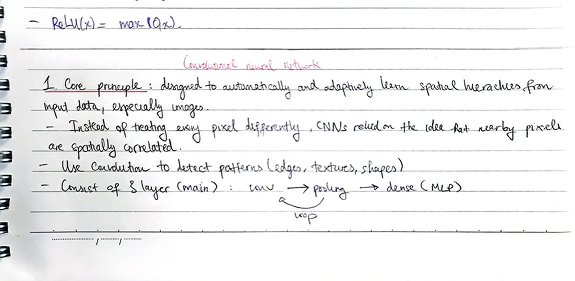 - ReLU(x) = max(0,x).
Convolutional neural network
1. Core principle : designed to automatically and adaptively learn spatial hierachies from
input data, especially images.
- Instead of treating every pixel differently, CNNs relied on the idea that nearby pixels
are spatially correlated.
- Use Convolution to detect patterns (edges, textures, shapes)
- Consist of 3 layer (main) : conv → pooling → dense (MLP)
loop